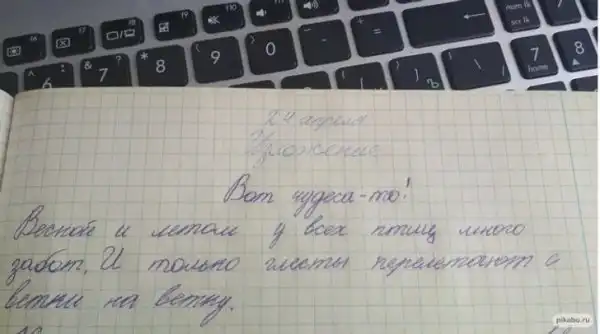 F6 F7 F8 F9 F10 F11
^ 6 & 7 * 8 ( 9 ) 0 - + =
num lk
scr lk
7 home 8
Ъ
24 апреля
Изложение
Вот чудеса-то!
Весной и летом у всех птиц много
забот. И только глисты перелетают с
ветки на ветку.
pikabu.ru